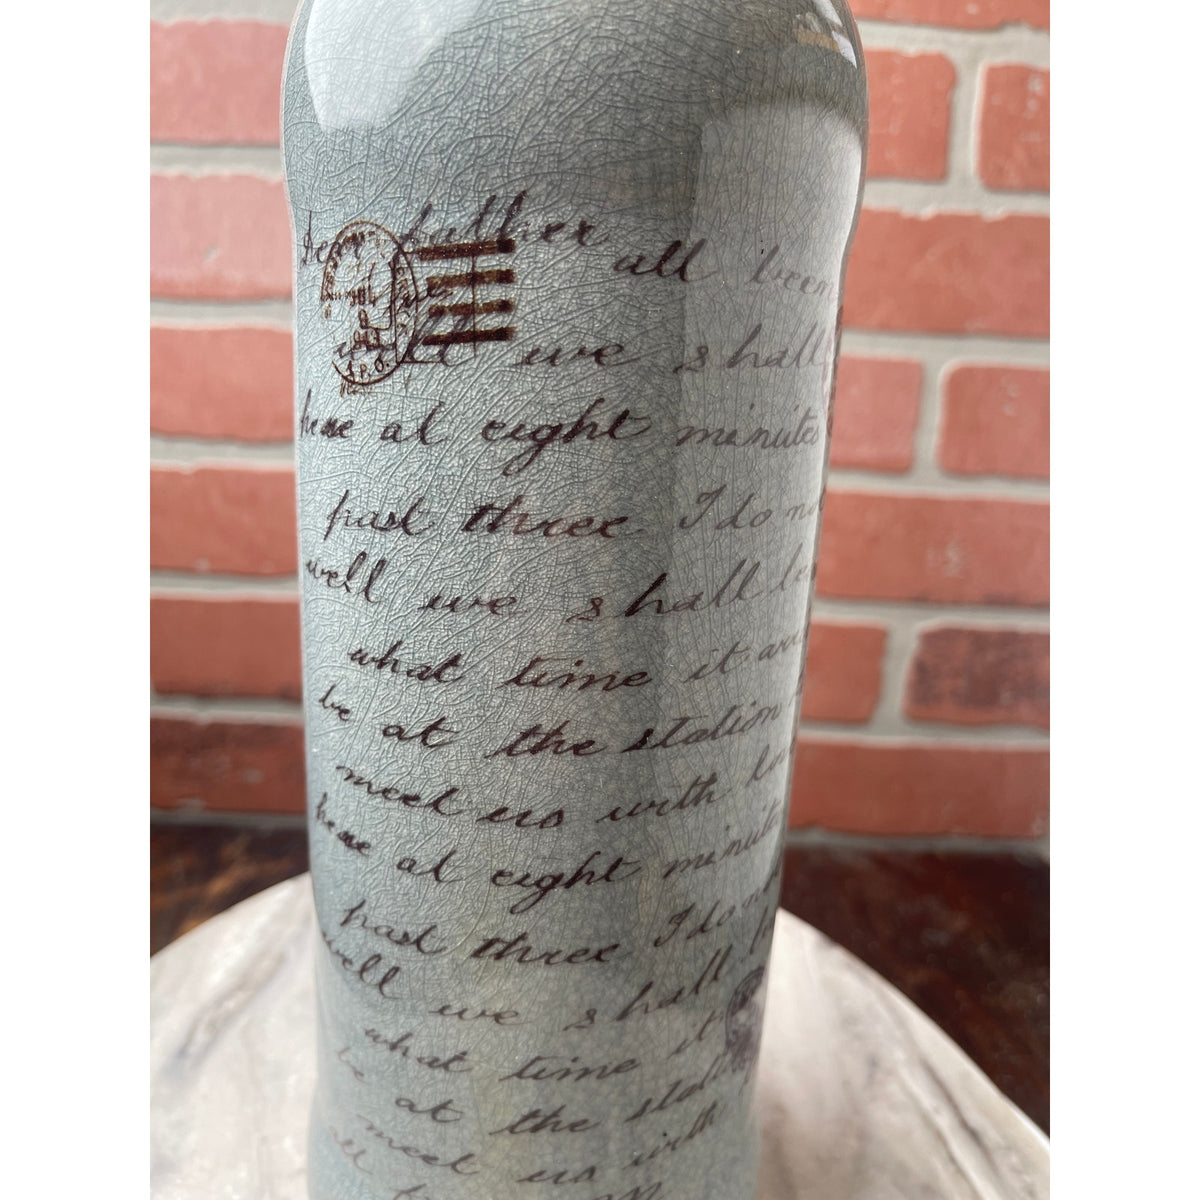 Dear father
all been
well we shall
here at eight minutes
past three I do not
well we shall
what time it
be at the station
meet us with
here at eight minutes
past three I do not
well we shall
what time it
be at the
meet us with
all
A.P.O.